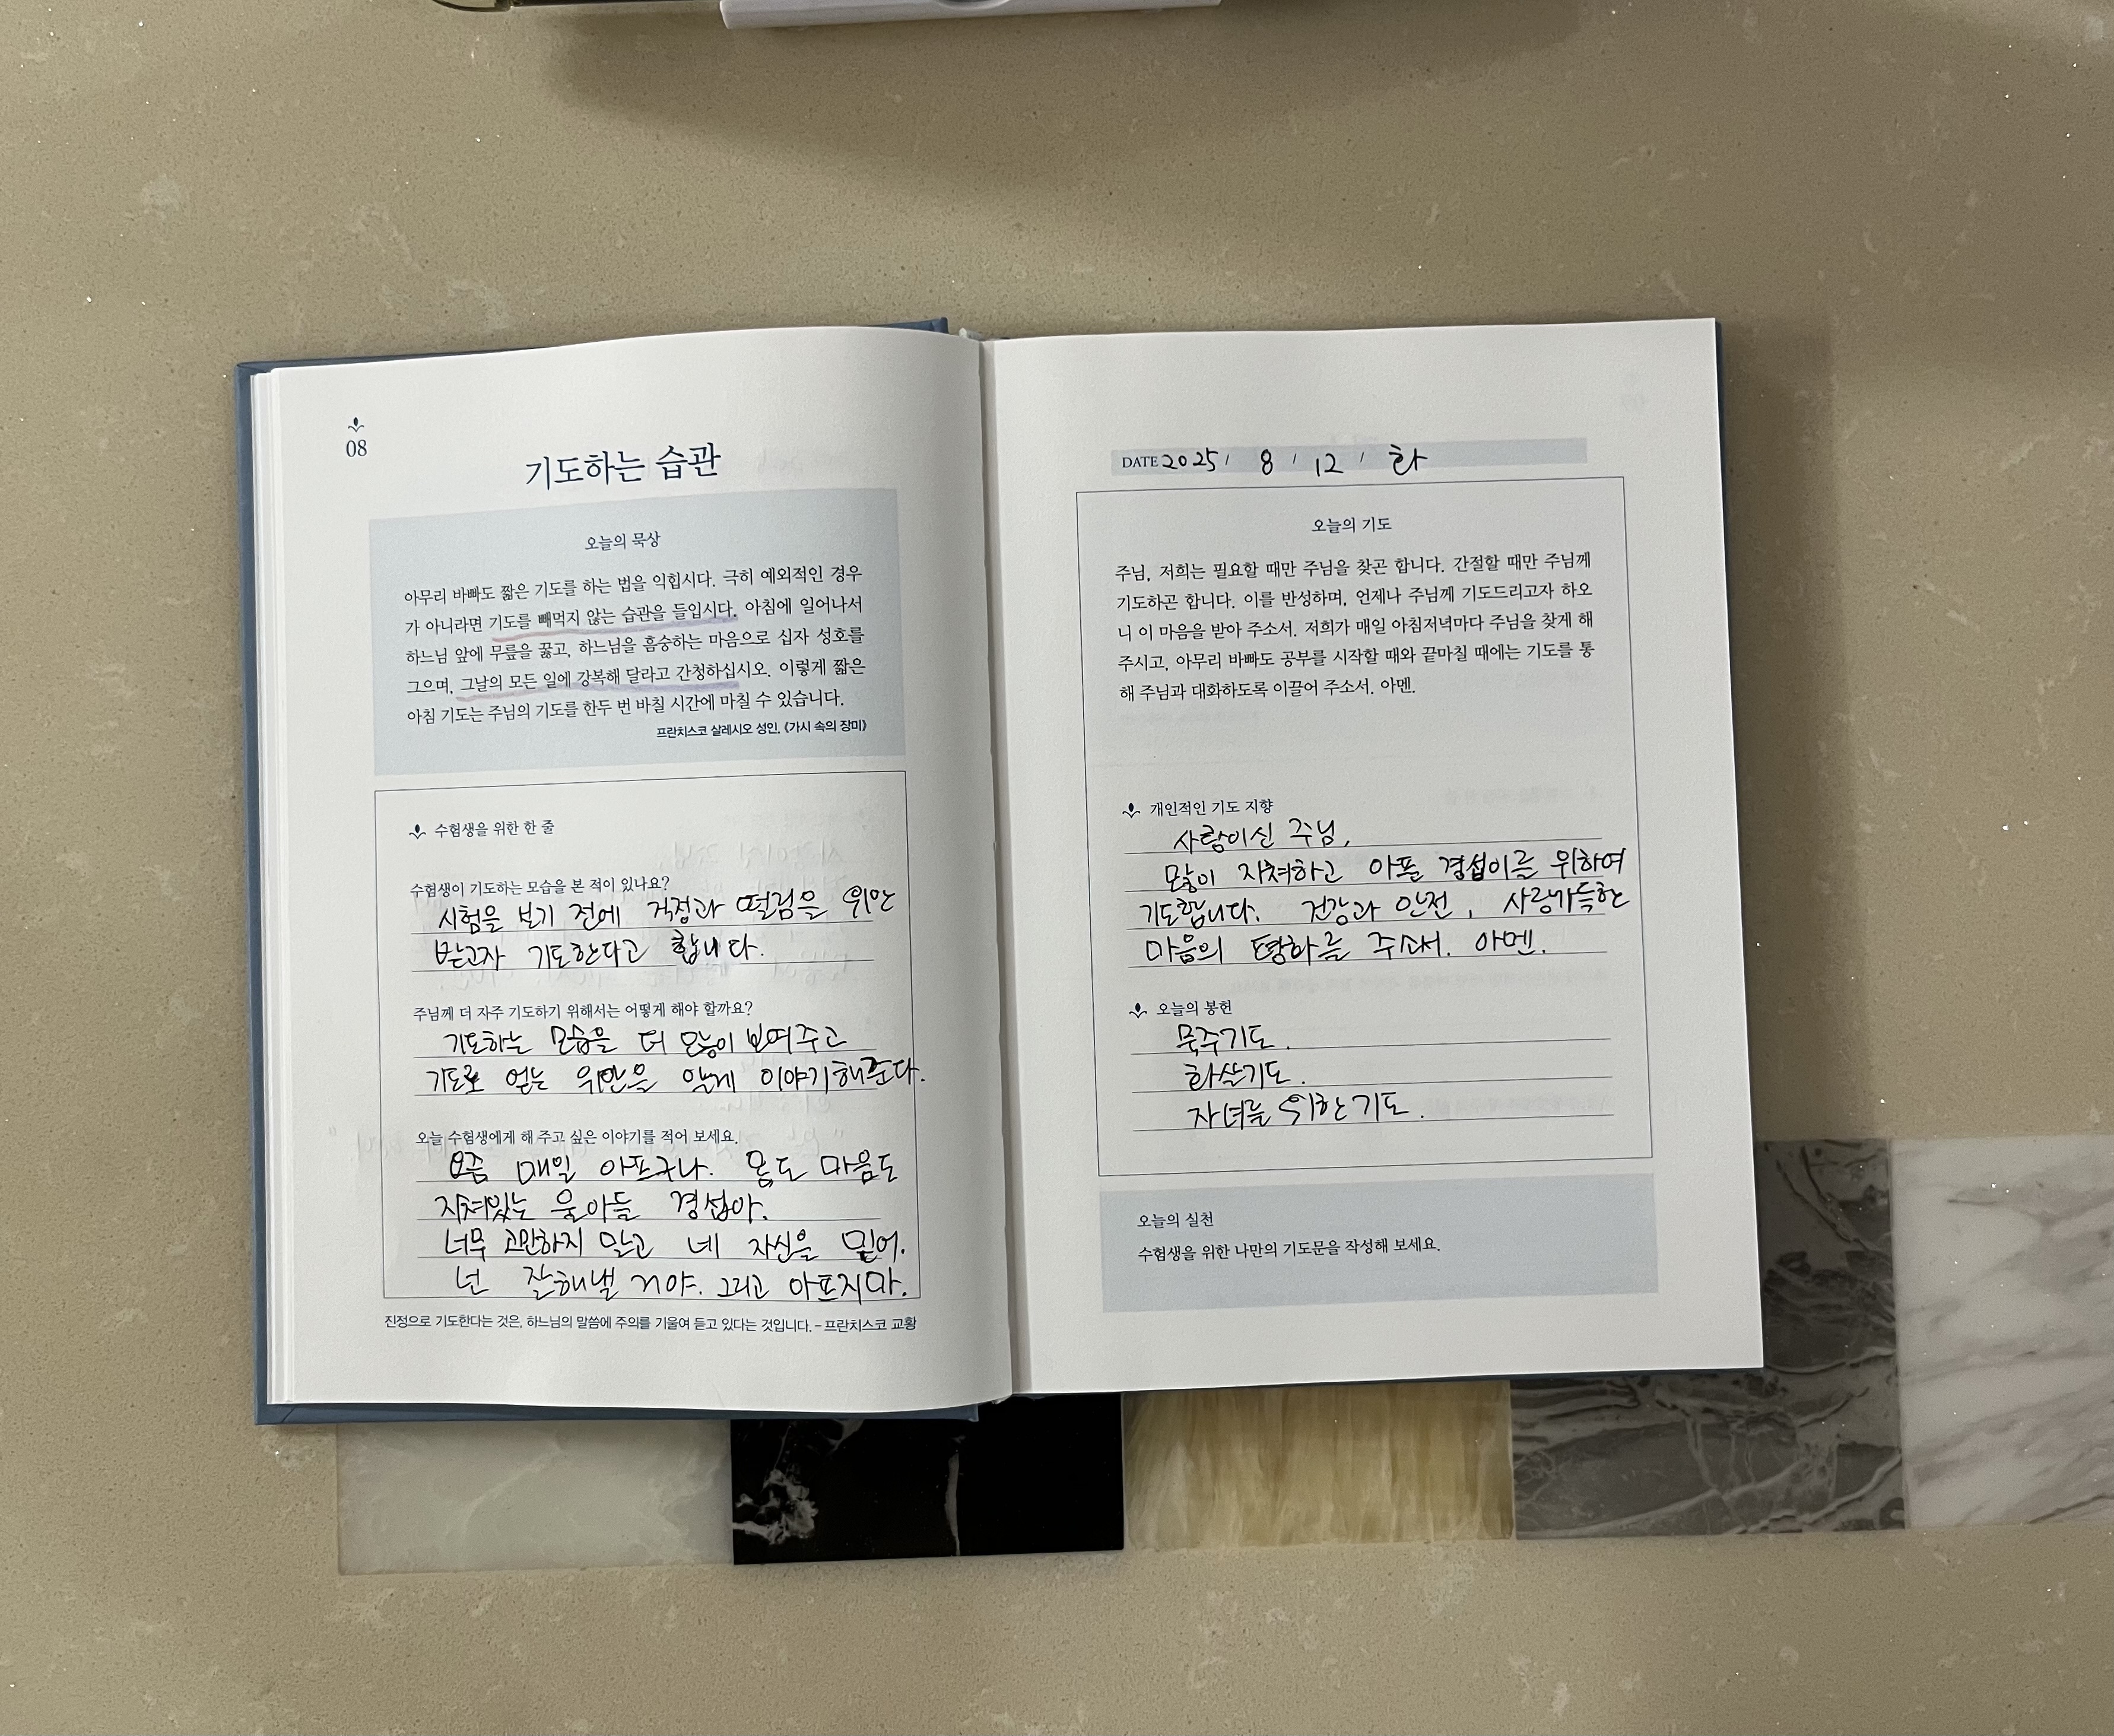 08
기도하는 습관
오늘의 묵상
아무리 바빠도 짧은 기도를 하는 법을 익힙시다. 극히 예외적인 경우
가 아니라면 기도를 빼먹지 않는 습관을 들입시다. 아침에 일어나서
하느님 앞에 무릎을 꿇고, 하느님을 흠숭하는 마음으로 십자 성호를
그으며, 그날의 모든 일에 강복해 달라고 간청하십시오. 이렇게 짧은
아침 기도는 주님의 기도를 한두 번 바칠 시간에 마칠 수 있습니다.
프란치스코 살레시오 성인, 《가시 속의 장미》
수험생을 위한 한 줄
수험생이 기도하는 모습을 본 적이 있나요?
시험을 보기 전에 걱정과 떨림을 위안
받고자 기도한다고 합니다.
주님께 더 자주 기도하기 위해서는 어떻게 해야 할까요?
기도하는 모습을 더 많이 보여주고
기도로 얻는 위안을 알게 이야기해준다.
오늘 수험생에게 해 주고 싶은 이야기를 적어 보세요.
요즘 매일 아프구나. 몸도 마음도
지쳐있는 울아들 경섭아.
너무 고민하지 말고 네 자신을 믿어.
넌 잘해낼 거야. 그리고 아프지마.
진정으로 기도한다는 것은, 하느님의 말씀에 주의를 기울여 듣고 있다는 것입니다. – 프란치스코 교황
DATE 2025 / 8 / 12 / 화
오늘의 기도
주님, 저희는 필요할 때만 주님을 찾곤 합니다. 간절할 때만 주님께
기도하곤 합니다. 이를 반성하며, 언제나 주님께 기도드리고자 하오
니 이 마음을 받아 주소서. 저희가 매일 아침저녁마다 주님을 찾게 해
주시고, 아무리 바빠도 공부를 시작할 때와 끝마칠 때에는 기도를 통
해 주님과 대화하도록 이끌어 주소서. 아멘.
개인적인 기도 지향
사랑이신 주님,
많이 지쳐하고 아픈 경섭이를 위하여
기도합니다. 건강과 안전, 사랑가득한
마음의 평화를 주소서. 아멘.
오늘의 봉헌
묵주기도.
화살기도.
자녀를 위한 기도.
오늘의 실천
수험생을 위한 나만의 기도문을 작성해 보세요.